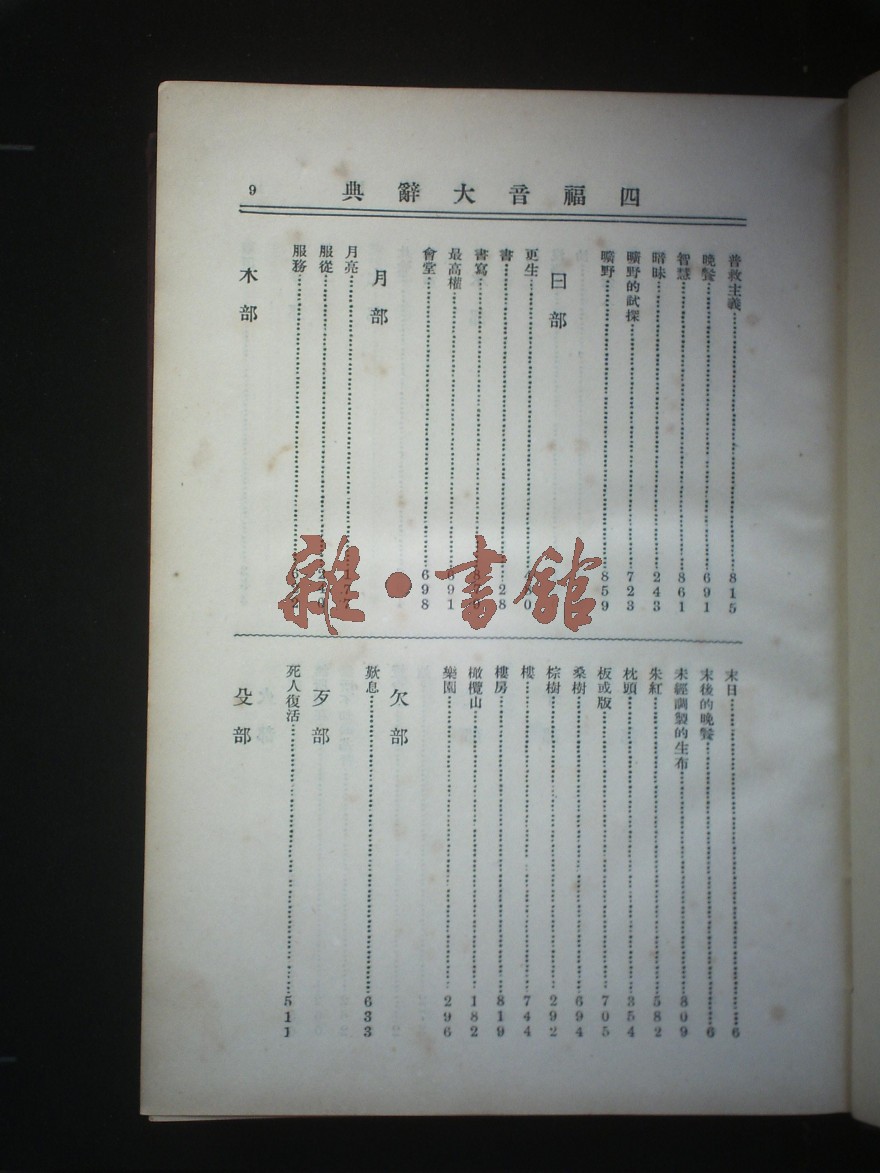 四福音大辭典
9
普救主義 815
晚餐 691
智慧 861
暗昧 243
曠野的試探 723
曠野 859
曰部
更生
書
書寫
最高權
會堂 698
月部
月亮
服從
服務
木部
末日 6
末後的晚餐 6
未經調製的生布 809
朱紅 582
枕頭 354
板或版 705
桑樹 694
棕樹 292
樓 744
樓房 819
橄欖山 182
樂園 296
欠部
歎息 633
歹部
死人復活 511
殳部
雜·書館